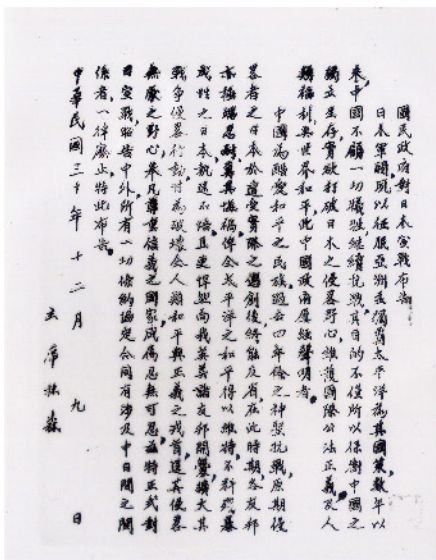 國民政府對日本宣戰布告
日本軍閥夙以征服亞洲並獨霸太平洋為其國策,數年以
來,中國不顧一切犧牲繼續抗戰,其目的不僅所以保衛中國之
獨立生存,實欲打破日本之侵畧野心,維護國際公法正義及人
類福利與世界和平,此中國政府屢經聲明者。
中國為酷愛和平之民族,過去四年餘之神聖抗戰,原期侵
畧者之日本於遭受實際之懲創後,終能反省,在此時期,各友邦
亦極端忍耐,冀其悔禍,俾全太平洋之和平得以維持,不料殘暴
成性之日本,執迷不悟,且更悍然向我英美諸友邦開釁,擴大其
戰爭侵畧行動,甘為破壞全人類和平與正義之戎首,逞其侵畧
無厭之野心,舉凡尊重信義之國家,咸屬忍無可忍,茲特正式對
日宣戰,昭告中外,所有一切條約協定合同有涉及中日間之關
係者,一律廢止,特此布告。
中華民國三十年十二月九日
主席林森